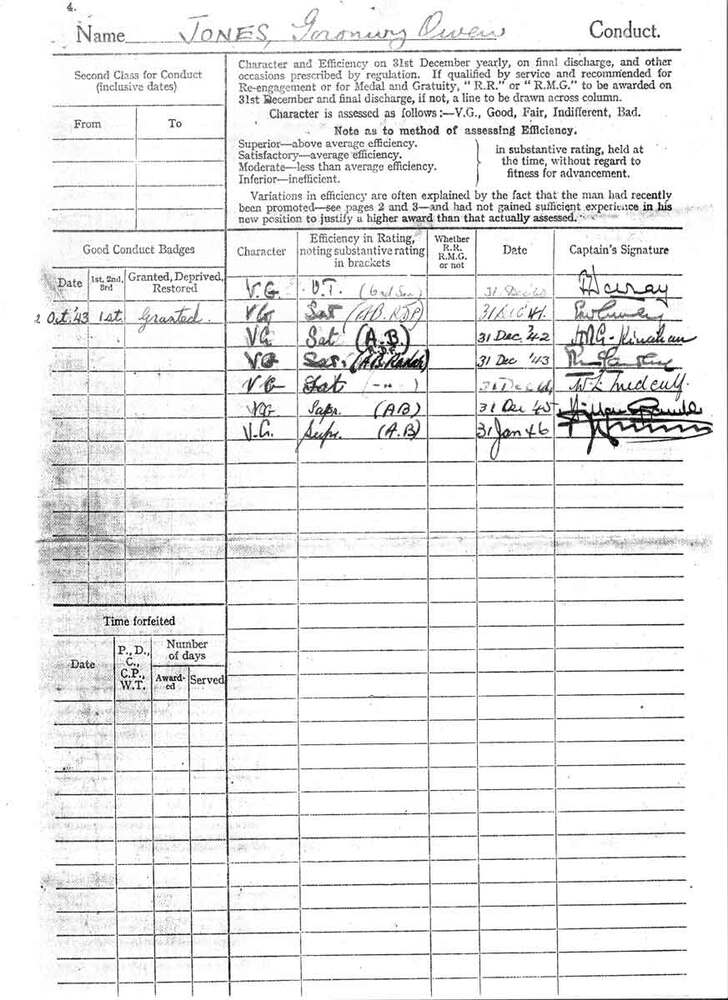 4.
Name JONES, Goronwy Owen Conduct.
Second Class for Conduct
(inclusive dates)
From To
Character and Efficiency on 31st December yearly, on final discharge, and other
occasions prescribed by regulation. If qualified by service and recommended for
Re-engagement or for Medal and Gratuity, "R.R." or "R.M.G." to be awarded on
31st December and final discharge, if not, a line to be drawn across column.
Character is assessed as follows:—V.G., Good, Fair, Indifferent, Bad.
Note as to method of assessing Efficiency.
Superior—above average efficiency.
Satisfactory—average efficiency.
Moderate—less than average efficiency.
Inferior—inefficient.
in substantive rating, held at
the time, without regard to
fitness for advancement.
Variations in efficiency are often explained by the fact that the man had recently
been promoted—see pages 2 and 3—and had not gained sufficient experience in his
new position to justify a higher award than that actually assessed.
Good Conduct Badges
Date
1st, 2nd,
3rd
Granted, Deprived,
Restored
2 Oct. '43 1st. Granted.
Character
Efficiency in Rating,
noting substantive rating
in brackets
Whether
R.R.
R.M.G.
or not
Date
Captain's Signature
V.G. U.T. 31 Dec
VG Sat 31 41.
VG Sat (A.B.) 31 Dec '42
VG Sat. (A.B. Radar) 31 Dec '43
VG Sat 31 Dec
VG Supr. (AB) 31 Dec 45
V.G. Supr. (A.B) 31 Jan 46
Time forfeited
Date
P., D.,
C.,
C.P.,
W.T.
Number
of days
Award-
ed
Served